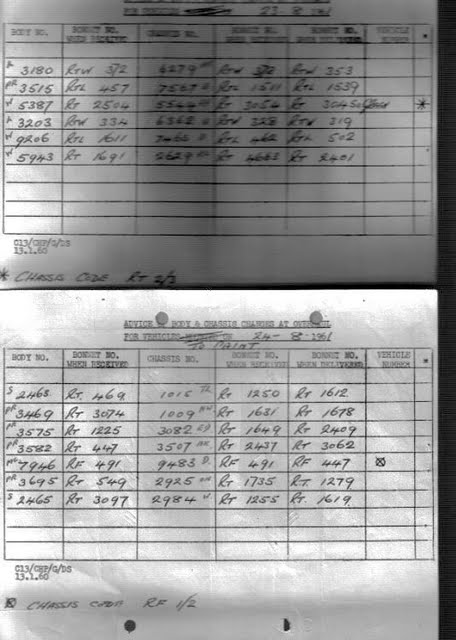 FOR VEHICLES 23-8-1961
BODY NO. BONNET NO. WHEN RECEIVED CHASSIS NO. BONNET NO. WHEN RECEIVED BONNET NO. WHEN DELIVERED VEHICLE NUMBER *
3180 RTW 372 6279 RTW 372 RTW 353
3515 RTL 457 7567 RTL 1511 RTL 1539
W 5387 RT 2504 5544 RT 3054 RT 3045 *
3203 RTW 334 6362 RTW 328 RTW 319
W 9206 RTL 1611 7465 RTL 462 RTL 502
W 5943 RT 1691 2629 RT 4683 RT 2401
C13/CHP/G/DS
13.1.60
* CHASSIS CODE RT 2/3
ADVICE OF BODY & CHASSIS CHANGES AT OVERHAUL
FOR VEHICLES ON 24-8-1961
TO PAINT
BODY NO. BONNET NO. WHEN RECEIVED CHASSIS NO. BONNET NO. WHEN RECEIVED BONNET NO. WHEN DELIVERED VEHICLE NUMBER *
S 2463 RT 469 1015 RT 1250 RT 1612
PR 3469 RT 3074 1009 RT 1631 RT 1678
PR 3575 RT 1225 3082 RT 1649 RT 2409
PR 3582 RT 447 3507 RT 2437 RT 3062
7946 RF 491 9483 RF 491 RF 447
PR 3695 RT 549 2925 RT 1735 RT 1279
S 2465 RT 3097 2984 RT 1255 RT 1619
C13/CHP/G/DS
13.1.60
CHASSIS CODE RF 1/2